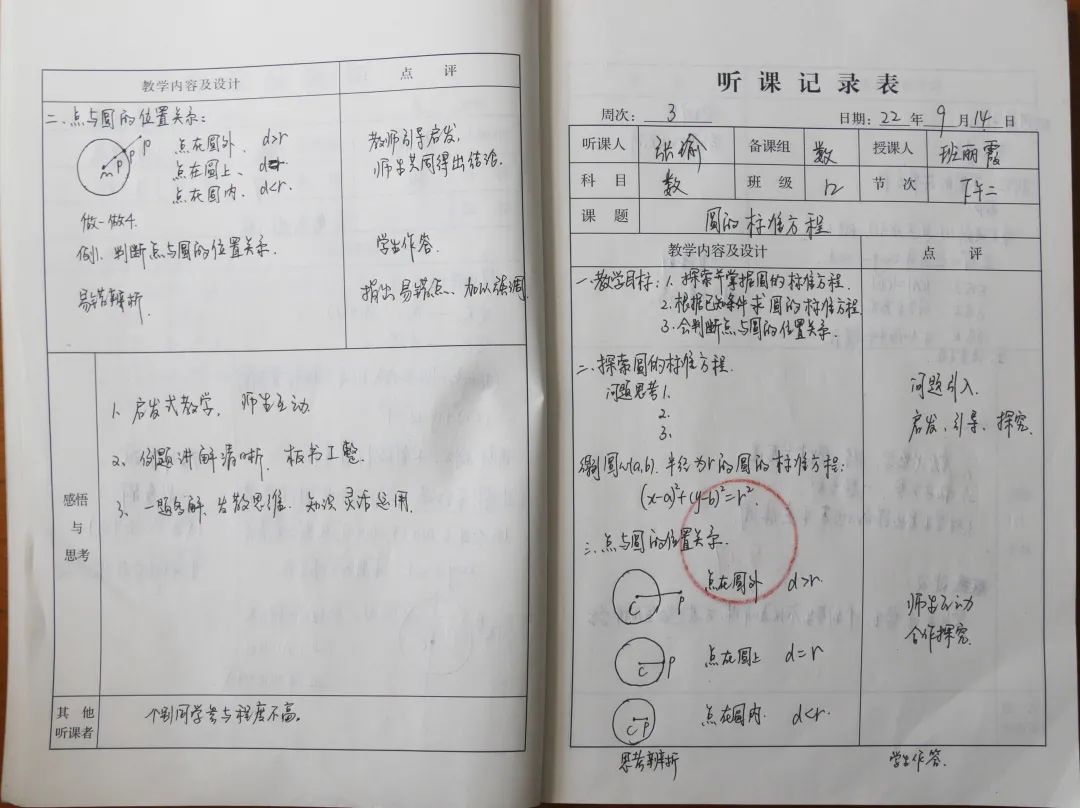 教学内容及设计 点评
二、点与圆的位置关系:
点在圆外、 d>r
点在圆上、 d=r
点在圆内、 d<r.
P
P
P
做一做4.
例1、判断点与圆的位置关系.
易错辨析.
教师引导启发,
师生共同得出结论.
学生作答.
指出易错点、加以强调
感悟与思考
1、启发式教学, 师生互动.
2、例题讲解清晰, 板书工整.
3、一题多解, 发散思维. 知识灵活运用.
其他听课者
个别同学参与程度不高.
听课记录表
周次: 3 日期: 22年9月14日
听课人 张瑜 备课组 数 授课人 班丽霞
科目 数 班级 12 节次 下午二
课题 圆的标准方程
教学内容及设计 点评
一、教学目标: 1. 探索并掌握圆的标准方程.
2. 根据已知条件求圆的标准方程.
3. 会判断点与圆的位置关系.
二、探索圆的标准方程.
问题思考1.
2.
3.
问题引入.
启发、引导、探究.
得到圆心(a,b). 半径为r的圆的标准方程:
(x-a)²+(y-b)²=r².
三、点与圆的位置关系.
C P 点在圆外 d>r.
C P 点在圆上 d=r
C P 点在圆内. d<r.
师生互动
合作探究.
思考辨析 学生作答.